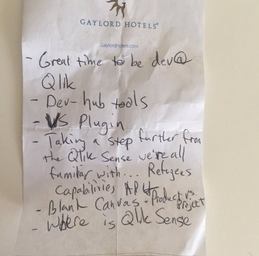 GAYLORD HOTELS
- Great time to be dev@
Qlik
- Dev-hub tools
- VS Plugin
- Taking a step further from
the Qlik Sense we're all
familiar with...
Capabilities API
- Blank Canvas - Product vs.
Project
- Where is Qlik Sense